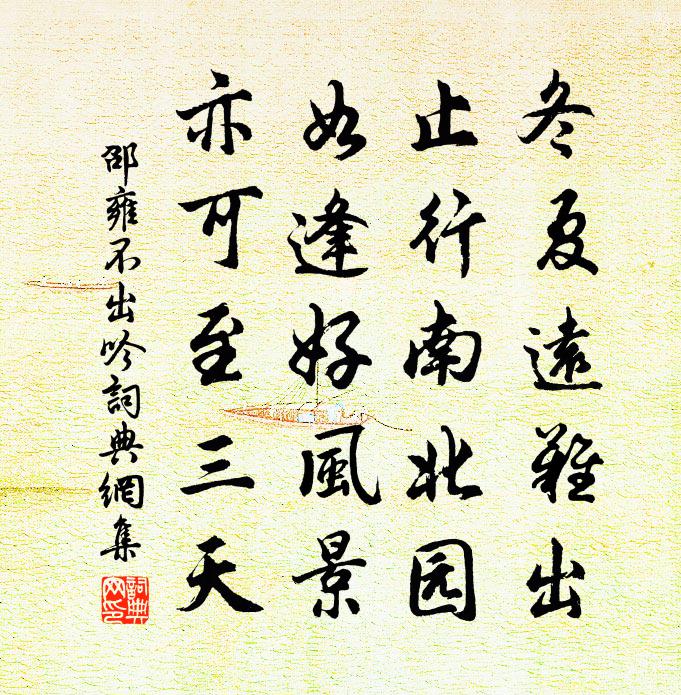 冬夏遠難出
止行南北园
如逢好風景
亦可至三天
邵雍不出吟詞典網集
詞典
网印